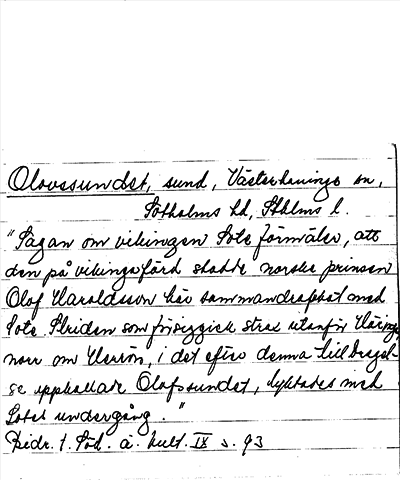 Olovssundet, sund, Västerhaninge sn,
Sotholms hd, Sthlms l.
"Sagan om vikingen Sote förmäler, att
den på vikingafärd stadde norske prinsen
Olof Haraldsson här sammandrabbat med
Sote. Striden som försiggick strax utanför Häringe
norr om Herrön, i det efter denna tilldragel-
se uppkallade Olofssundet, lyktades med
Sotes undergång."
Bidr. t. Söd. ä. kult. IX s. 93